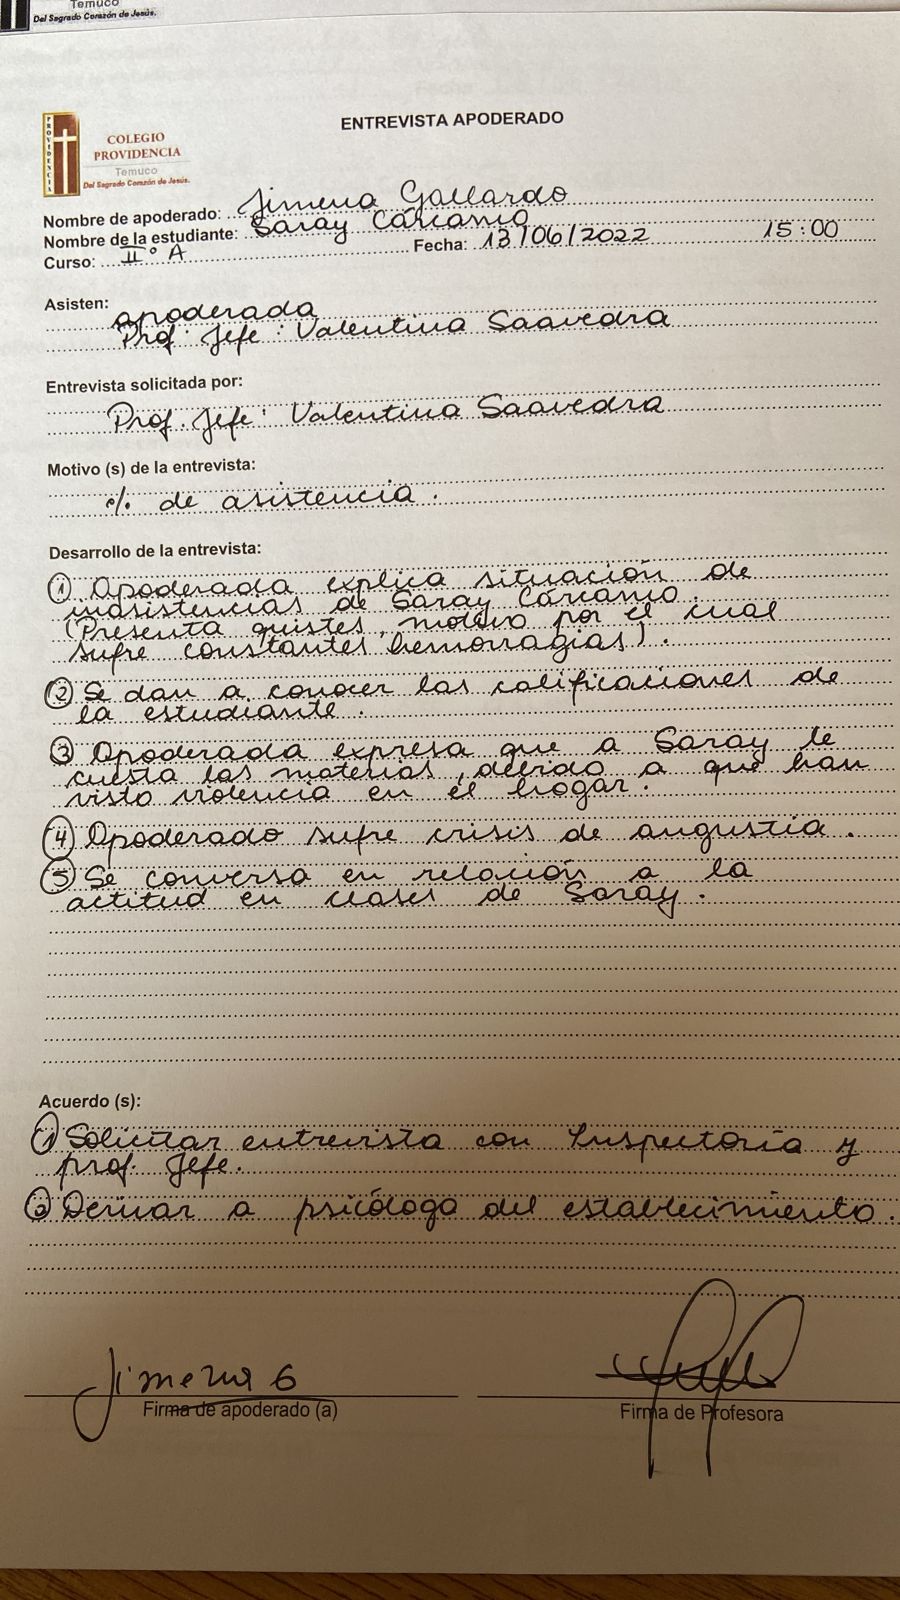 Temuco
Del Sagrado Corazón de Jesús.
PROVIDENCIA
COLEGIO
PROVIDENCIA
Temuco
Del Sagrado Corazón de Jesús.
ENTREVISTA APODERADO
Nombre de apoderado: Jimena Gallardo
Nombre de la estudiante: Saray Cárcamo
Curso: II° A Fecha: 13/06/2022 15:00
Asisten:
apoderada
Prof. Jefe: Valentina Saavedra
Entrevista solicitada por:
Prof. Jefe: Valentina Saavedra
Motivo (s) de la entrevista:
% de asistencia.
Desarrollo de la entrevista:
① Apoderada explica situación de
inasistencias de Saray Cárcamo.
(Presenta quistes, motivo por el cual
sufre constantes hemorragias).
② Se dan a conocer las calificaciones de
la estudiante.
③ Apoderada expresa que a Saray le
cuesta las materias, debido a que han
visto violencia en el hogar.
④ Apoderado sufre crisis de angustia.
⑤ Se conversa en relación a la
actitud en clases de Saray.
Acuerdo (s):
① Solicitar entrevista con Inspectoría y
prof. Jefe.
② Derivar a psicóloga del establecimiento.
Jimena G
Firma de apoderado (a)
Firma de Profesora